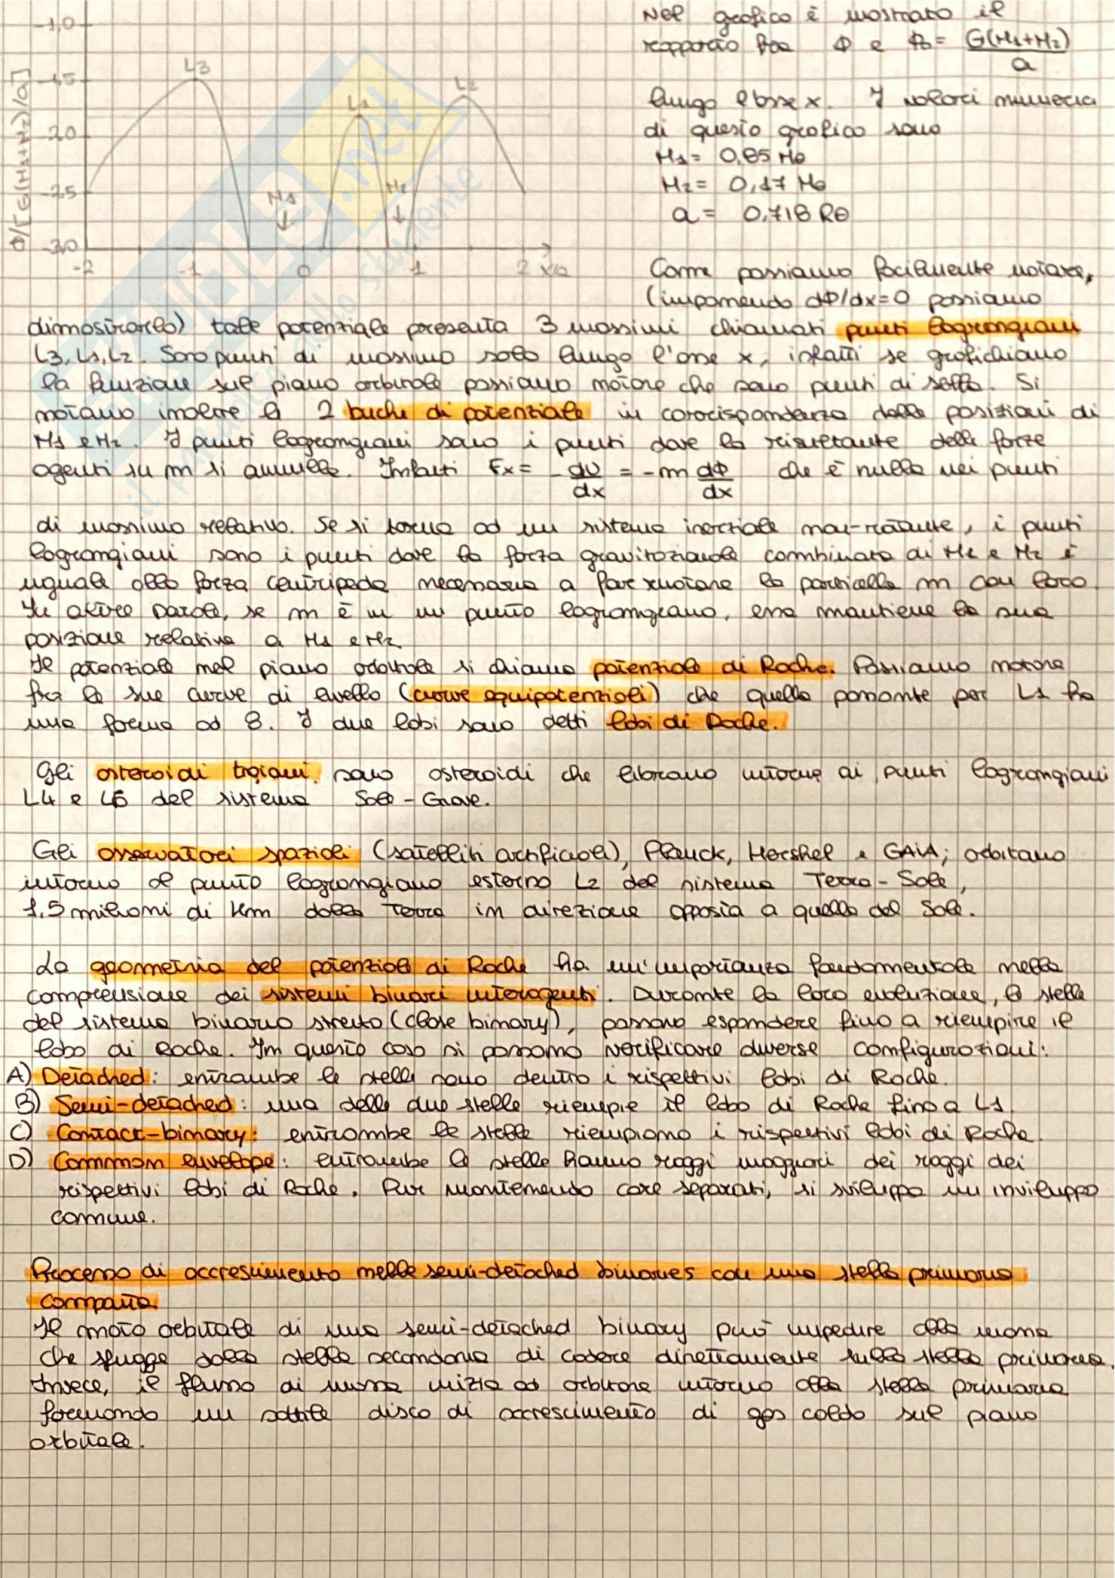 Nel grafico è mostrato il
rapporto fra Φ e Φ₀ = G(M₁+M₂)/a
lungo l'asse x. I valori numerici
di questo grafico sono
M₁ = 0,85 M⊙
M₂ = 0,17 M⊙
a = 0,718 R⊙
Φ/[G(M₁+M₂)/a]
-1,0
-1,5
-2,0
-2,5
-3,0
L3
L1
L2
M₁
M₂
-2 -1 0 1 2 x/a
Come possiamo facilmente notare,
(imponendo dΦ/dx=0 possiamo
dimostrarlo) tale potenziale presenta 3 massimi chiamati punti lagrangiani
L3, L1, L2. Sono punti di massimo solo lungo l'asse x, infatti se grafichiamo
la funzione sul piano orbitale possiamo notare che sono punti di sella. Si
notano inoltre le 2 buche di potenziale in corrispondenza delle posizioni di
M₁ e M₂. I punti lagrangiani sono i punti dove la risultante delle forze
agenti su m si annulla. Infatti Fx = -dU/dx = -m dΦ/dx che è nulla nei punti
di massimo relativo. Se si torna ad un sistema inerziale non-rotante, i punti
lagrangiani sono i punti dove la forza gravitazionale combinata di M₁ e M₂ è
uguale alla forza centripeta necessaria a far ruotare la particella m con loro.
In altre parole, se m è in un punto lagrangiano, essa mantiene la sua
posizione relativa a M₁ e M₂.
Il potenziale nel piano orbitale si chiama potenziale di Roche. Possiamo notare
fra le sue curve di livello (curve equipotenziali) che quella passante per L1 ha
una forma ad 8. I due lobi sono detti lobi di Roche.
Gli asteroidi troiani sono asteroidi che librano intorno ai punti lagrangiani
L4 e L5 del sistema Sole-Giove.
Gli osservatori spaziali (satelliti artificiali), Planck, Hershel e GAIA, orbitano
intorno al punto lagrangiano esterno L2 del sistema Terra-Sole,
1,5 milioni di km dalla Terra in direzione opposta a quella del Sole.
La geometria del potenziale di Roche ha un'importanza fondamentale nella
comprensione dei sistemi binari interagenti. Durante la loro evoluzione, le stelle
del sistema binario stretto (close binary), possono espandere fino a riempire il
lobo di Roche. In questo caso si possono verificare diverse configurazioni:
A) Detached: entrambe le stelle sono dentro i rispettivi lobi di Roche.
B) Semi-detached: una delle due stelle riempie il lobo di Roche fino a L1
C) Contact-binary: entrambe le stelle riempiono i rispettivi lobi di Roche.
D) Common envelope: entrambe le stelle hanno raggi maggiori dei raggi dei
rispettivi lobi di Roche. Pur mantenendo core separati, si sviluppa un inviluppo
comune.
Processo di accrescimento nelle semi-detached binaries con una stella primaria
compatta
Il moto orbitale di una semi-detached binary può impedire alla massa
che sfugge dalla stella secondaria di cadere direttamente sulla stella primaria.
Invece, il flusso di massa inizia ad orbitare intorno alla stella primaria
formando un sottile disco di accrescimento di gas caldo sul piano
orbitale.